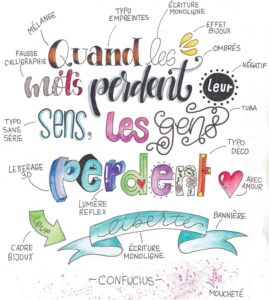 MÉLANGE
TYPO EMPREINTES
ÉCRITURE MONOLIGNE
EFFET BIJOUX
FAUSSE CALLIGRAPHIE
OMBRÉS
NÉGATIF
Quand les
mots perdent leur
TUBA
TYPO SANS SÉRIE
sens, les gens
TYPO DÉCO
LETTERAGE 3D
perdent
AVEC AMOUR
LUMIÈRE REFLEX
leur liberté
BANNIÈRE
CADRE BIJOUX
ÉCRITURE MONOLIGNE
-CONFUCIUS-
MOUCHETÉ